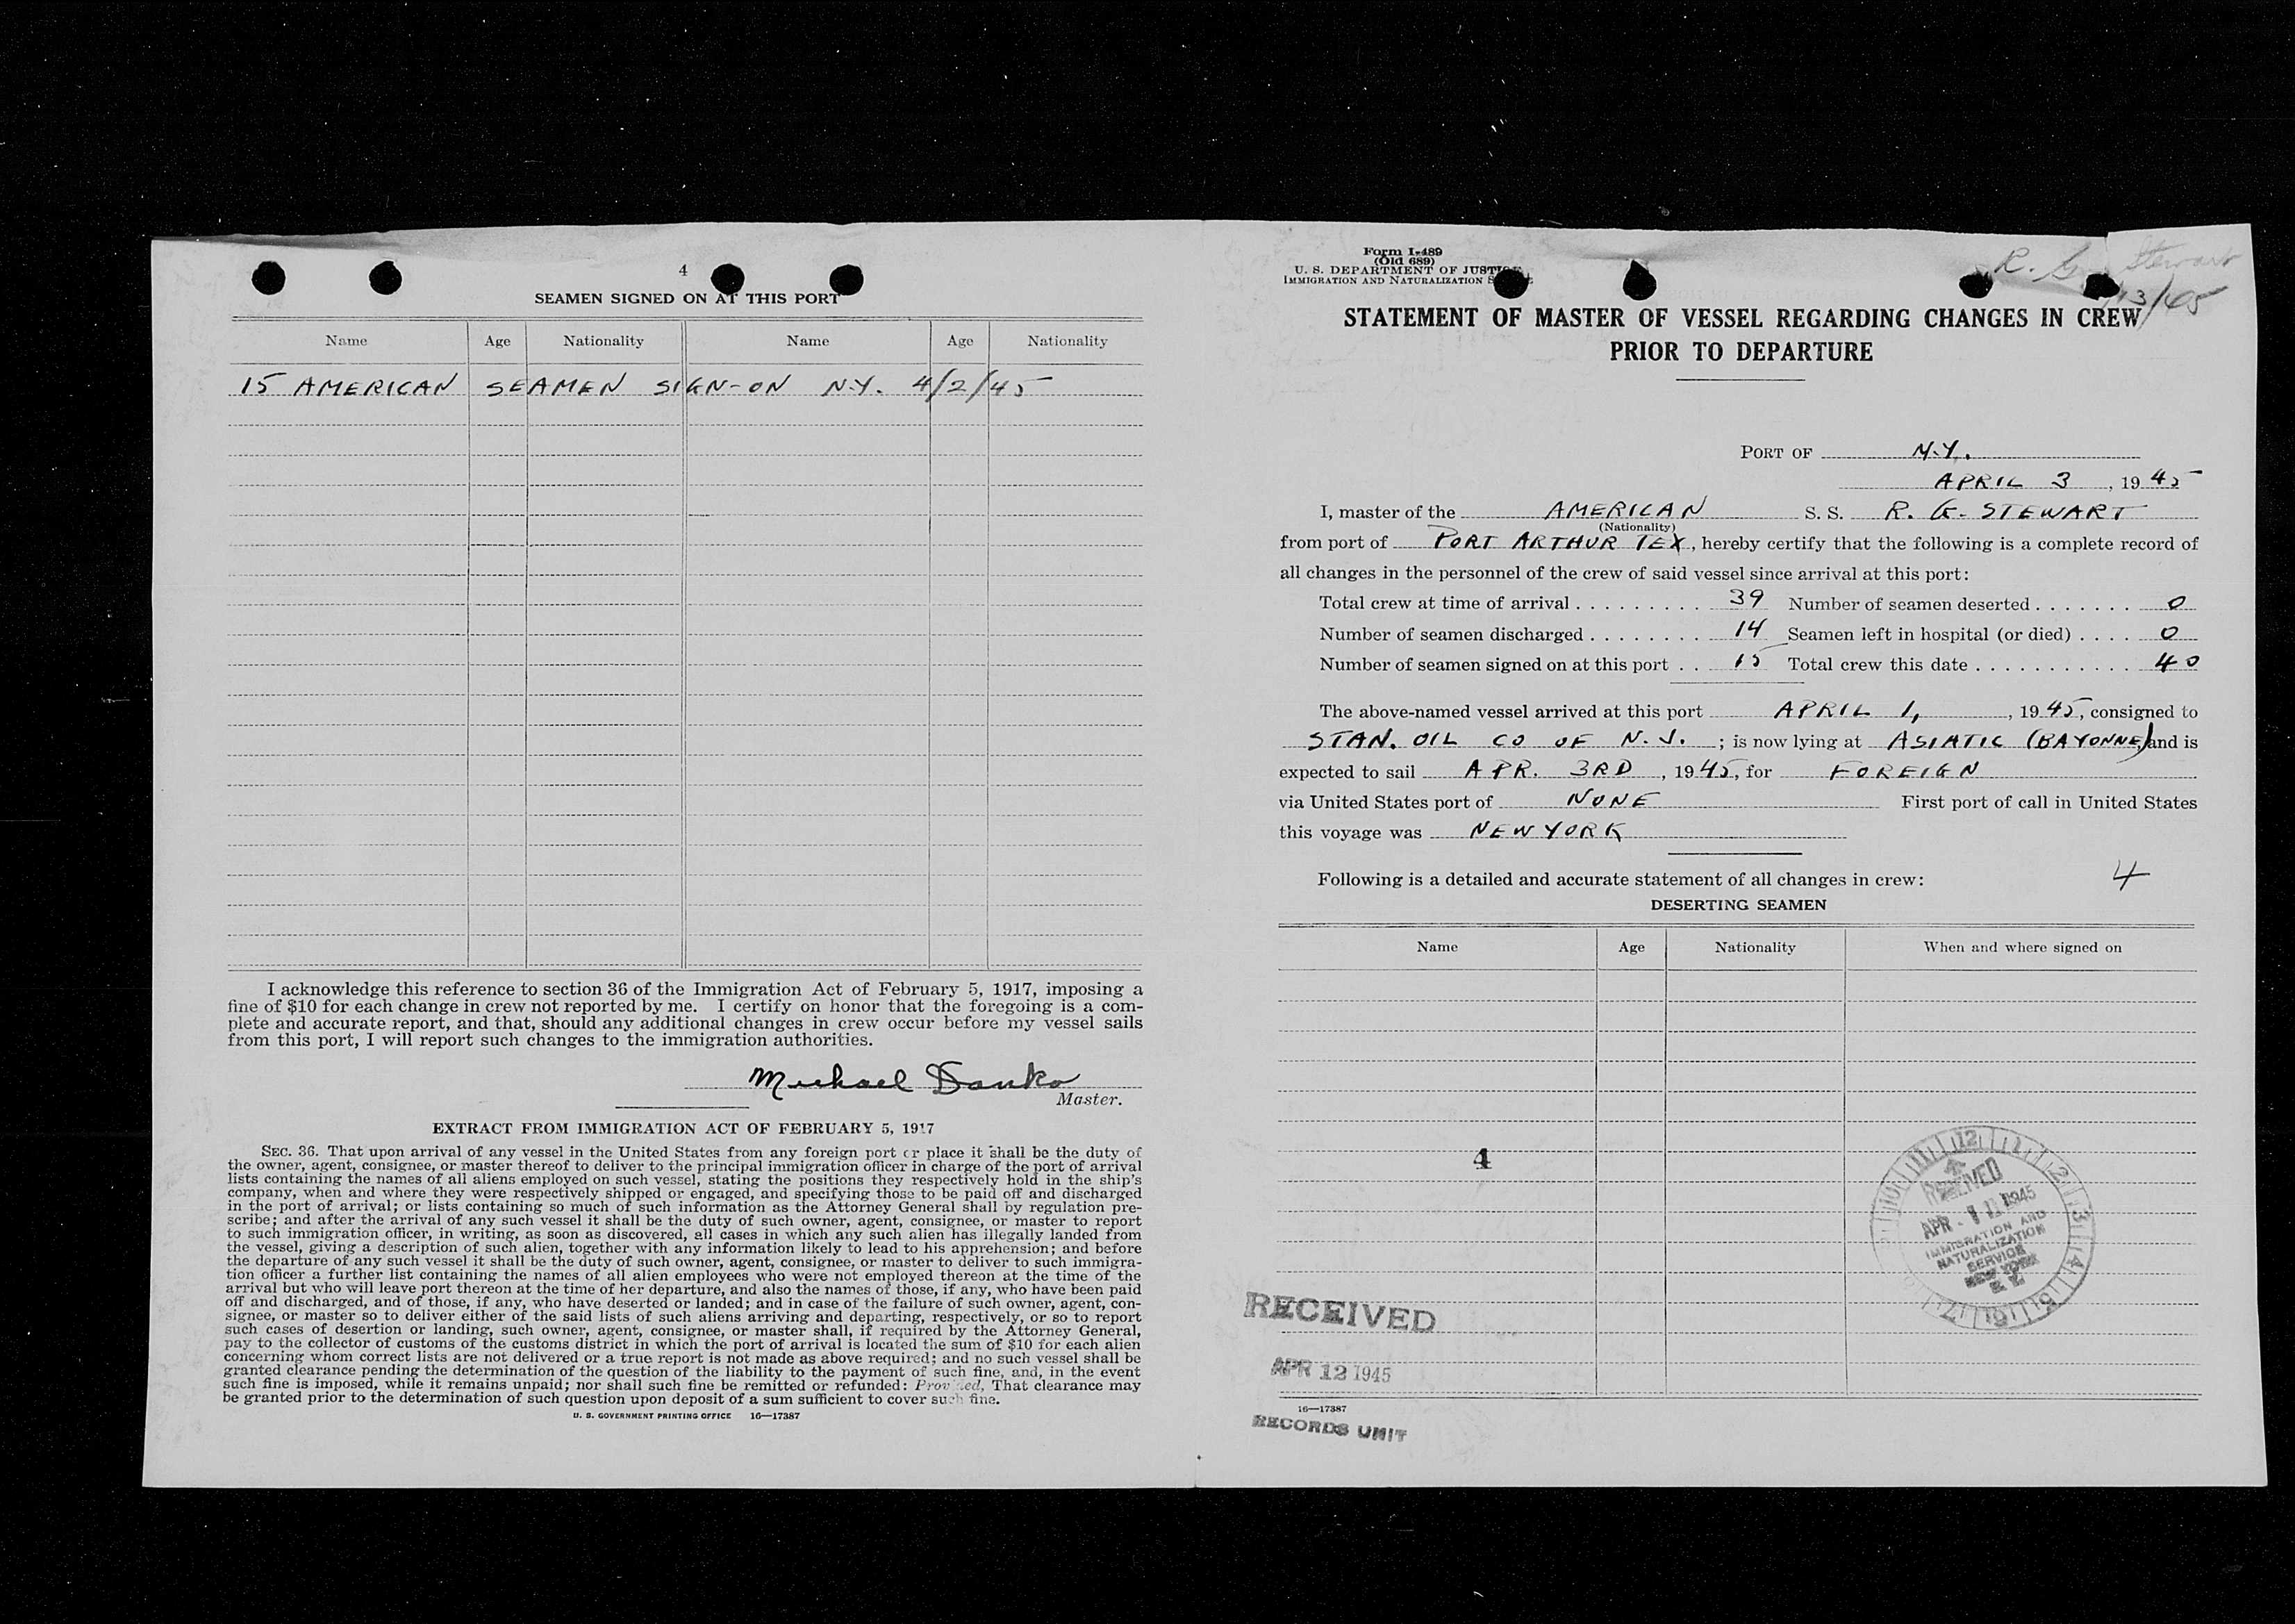 4
SEAMEN SIGNED ON AT THIS PORT
Name Age Nationality Name Age Nationality
15 AMERICAN SEAMEN SIGN-ON N.Y. 4/2/45
I acknowledge this reference to section 36 of the Immigration Act of February 5, 1917, imposing a
fine of $10 for each change in crew not reported by me. I certify on honor that the foregoing is a com-
plete and accurate report, and that, should any additional changes in crew occur before my vessel sails
from this port, I will report such changes to the immigration authorities.
Michael Danko
Master.
EXTRACT FROM IMMIGRATION ACT OF FEBRUARY 5, 1917
SEC. 36. That upon arrival of any vessel in the United States from any foreign port or place it shall be the duty of
the owner, agent, consignee, or master thereof to deliver to the principal immigration officer in charge of the port of arrival
lists containing the names of all aliens employed on such vessel, stating the positions they respectively hold in the ship's
company, when and where they were respectively shipped or engaged, and specifying those to be paid off and discharged
in the port of arrival; or lists containing so much of such information as the Attorney General shall by regulation pre-
scribe; and after the arrival of any such vessel it shall be the duty of such owner, agent, consignee, or master to report
to such immigration officer, in writing, as soon as discovered, all cases in which any such alien has illegally landed from
the vessel, giving a description of such alien, together with any information likely to lead to his apprehension; and before
the departure of any such vessel it shall be the duty of such owner, agent, consignee, or master to deliver to such immigra-
tion officer a further list containing the names of all alien employees who were not employed thereon at the time of the
arrival but who will leave port thereon at the time of her departure, and also the names of those, if any, who have been paid
off and discharged, and of those, if any, who have deserted or landed; and in case of the failure of such owner, agent, con-
signee, or master so to deliver either of the said lists of such aliens arriving and departing, respectively, or so to report
such cases of desertion or landing, such owner, agent, consignee, or master shall, if required by the Attorney General,
pay to the collector of customs of the customs district in which the port of arrival is located the sum of $10 for each alien
concerning whom correct lists are not delivered or a true report is not made as above required; and no such vessel shall be
granted clearance pending the determination of the question of the liability to the payment of such fine, and, in the event
such fine is imposed, while it remains unpaid; nor shall such fine be remitted or refunded: Provided, That clearance may
be granted prior to the determination of such question upon deposit of a sum sufficient to cover such fine.
U. S. GOVERNMENT PRINTING OFFICE 16—17387
Form I-489
(Old 689)
U. S. DEPARTMENT OF JUSTICE
IMMIGRATION AND NATURALIZATION
R. G. Stewart
STATEMENT OF MASTER OF VESSEL REGARDING CHANGES IN CREW
PRIOR TO DEPARTURE
PORT OF N.Y.
APRIL 3, 1945
I, master of the AMERICAN S. S. R. G. STEWART
(Nationality)
from port of PORT ARTHUR TEX, hereby certify that the following is a complete record of
all changes in the personnel of the crew of said vessel since arrival at this port:
Total crew at time of arrival . . . . . . . . . 39 Number of seamen deserted . . . . . . . 0
Number of seamen discharged . . . . . . . . 14 Seamen left in hospital (or died) . . . . 0
Number of seamen signed on at this port . . 15 Total crew this date . . . . . . . . . . . 40
The above-named vessel arrived at this port APRIL 1, , 1945, consigned to
STAN. OIL CO OF N.J. ; is now lying at ASIATIC (BAYONNE) and is
expected to sail APR. 3RD , 1945, for FOREIGN
via United States port of NONE First port of call in United States
this voyage was NEW YORK
Following is a detailed and accurate statement of all changes in crew: 4
DESERTING SEAMEN
Name Age Nationality When and where signed on
4
RECEIVED
APR 1945
IMMIGRATION AND
NATURALIZATION
SERVICE
NEW YORK
RECEIVED
APR 12 1945
16—17387
RECORDS UNIT